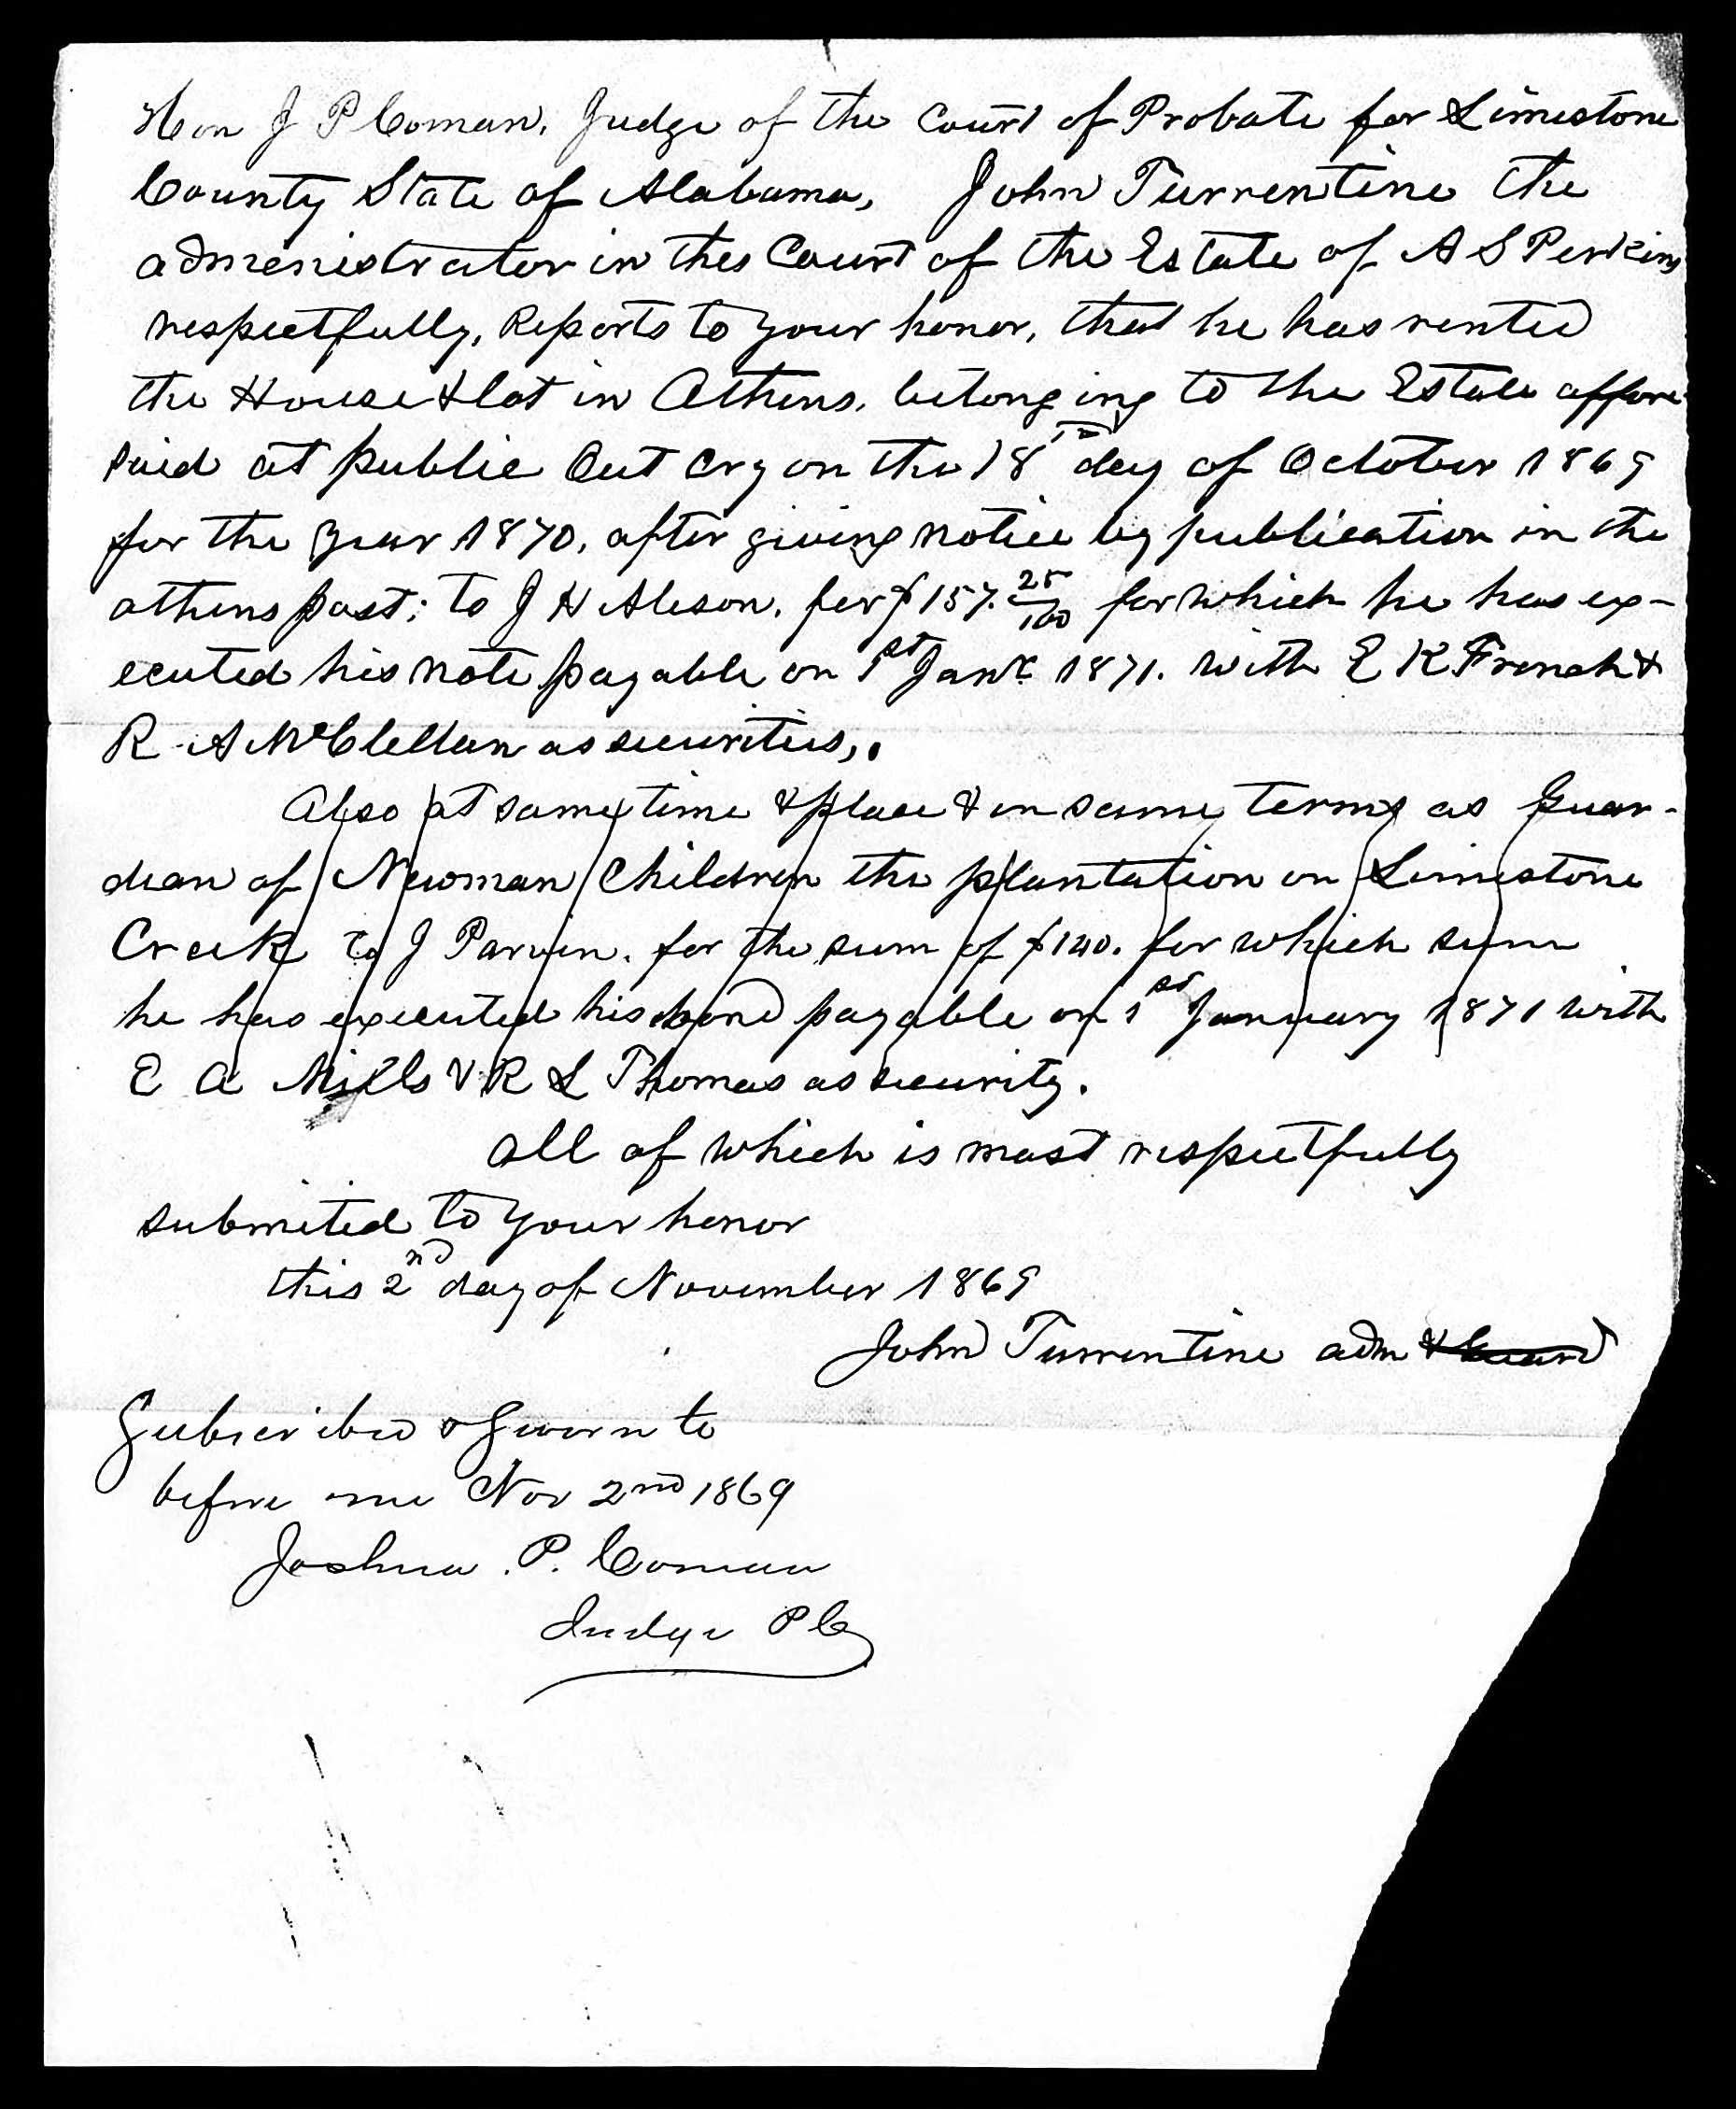 Hon J P Coman, Judge of the Court of Probate for Limestone
County State of Alabama, John Turrentine the
administrator in this Court of the Estate of A S Perkins
respectfully, Reports to your honor, that he has rented
the House & lot in Athens, belonging to the Estate affore
said at public Out cry on the 18th day of October 1869
for the year 1870, after giving notice by publication in the
athens post; to J H Alison, for $157.25/100 for which he has ex-
ecuted his note payable on 1st Jany 1871. with E K French &
R A McClellan as securities,.
Also at same time & place & on same terms as Guar-
dian of Newman Children the plantation on Limestone
Creek to J Parvin. for the sum of $140. for which sum
he has executed his bond payable on 1st January 1871 with
E A Mills & R L Thomas as security.
All of which is most respectfully
submited to your honor
this 2nd day of November 1869
John Turrentine adm & Guard
Subscribed & Sworn to
before me Nov 2nd 1869
Joshua . P. Coman
Judge P C